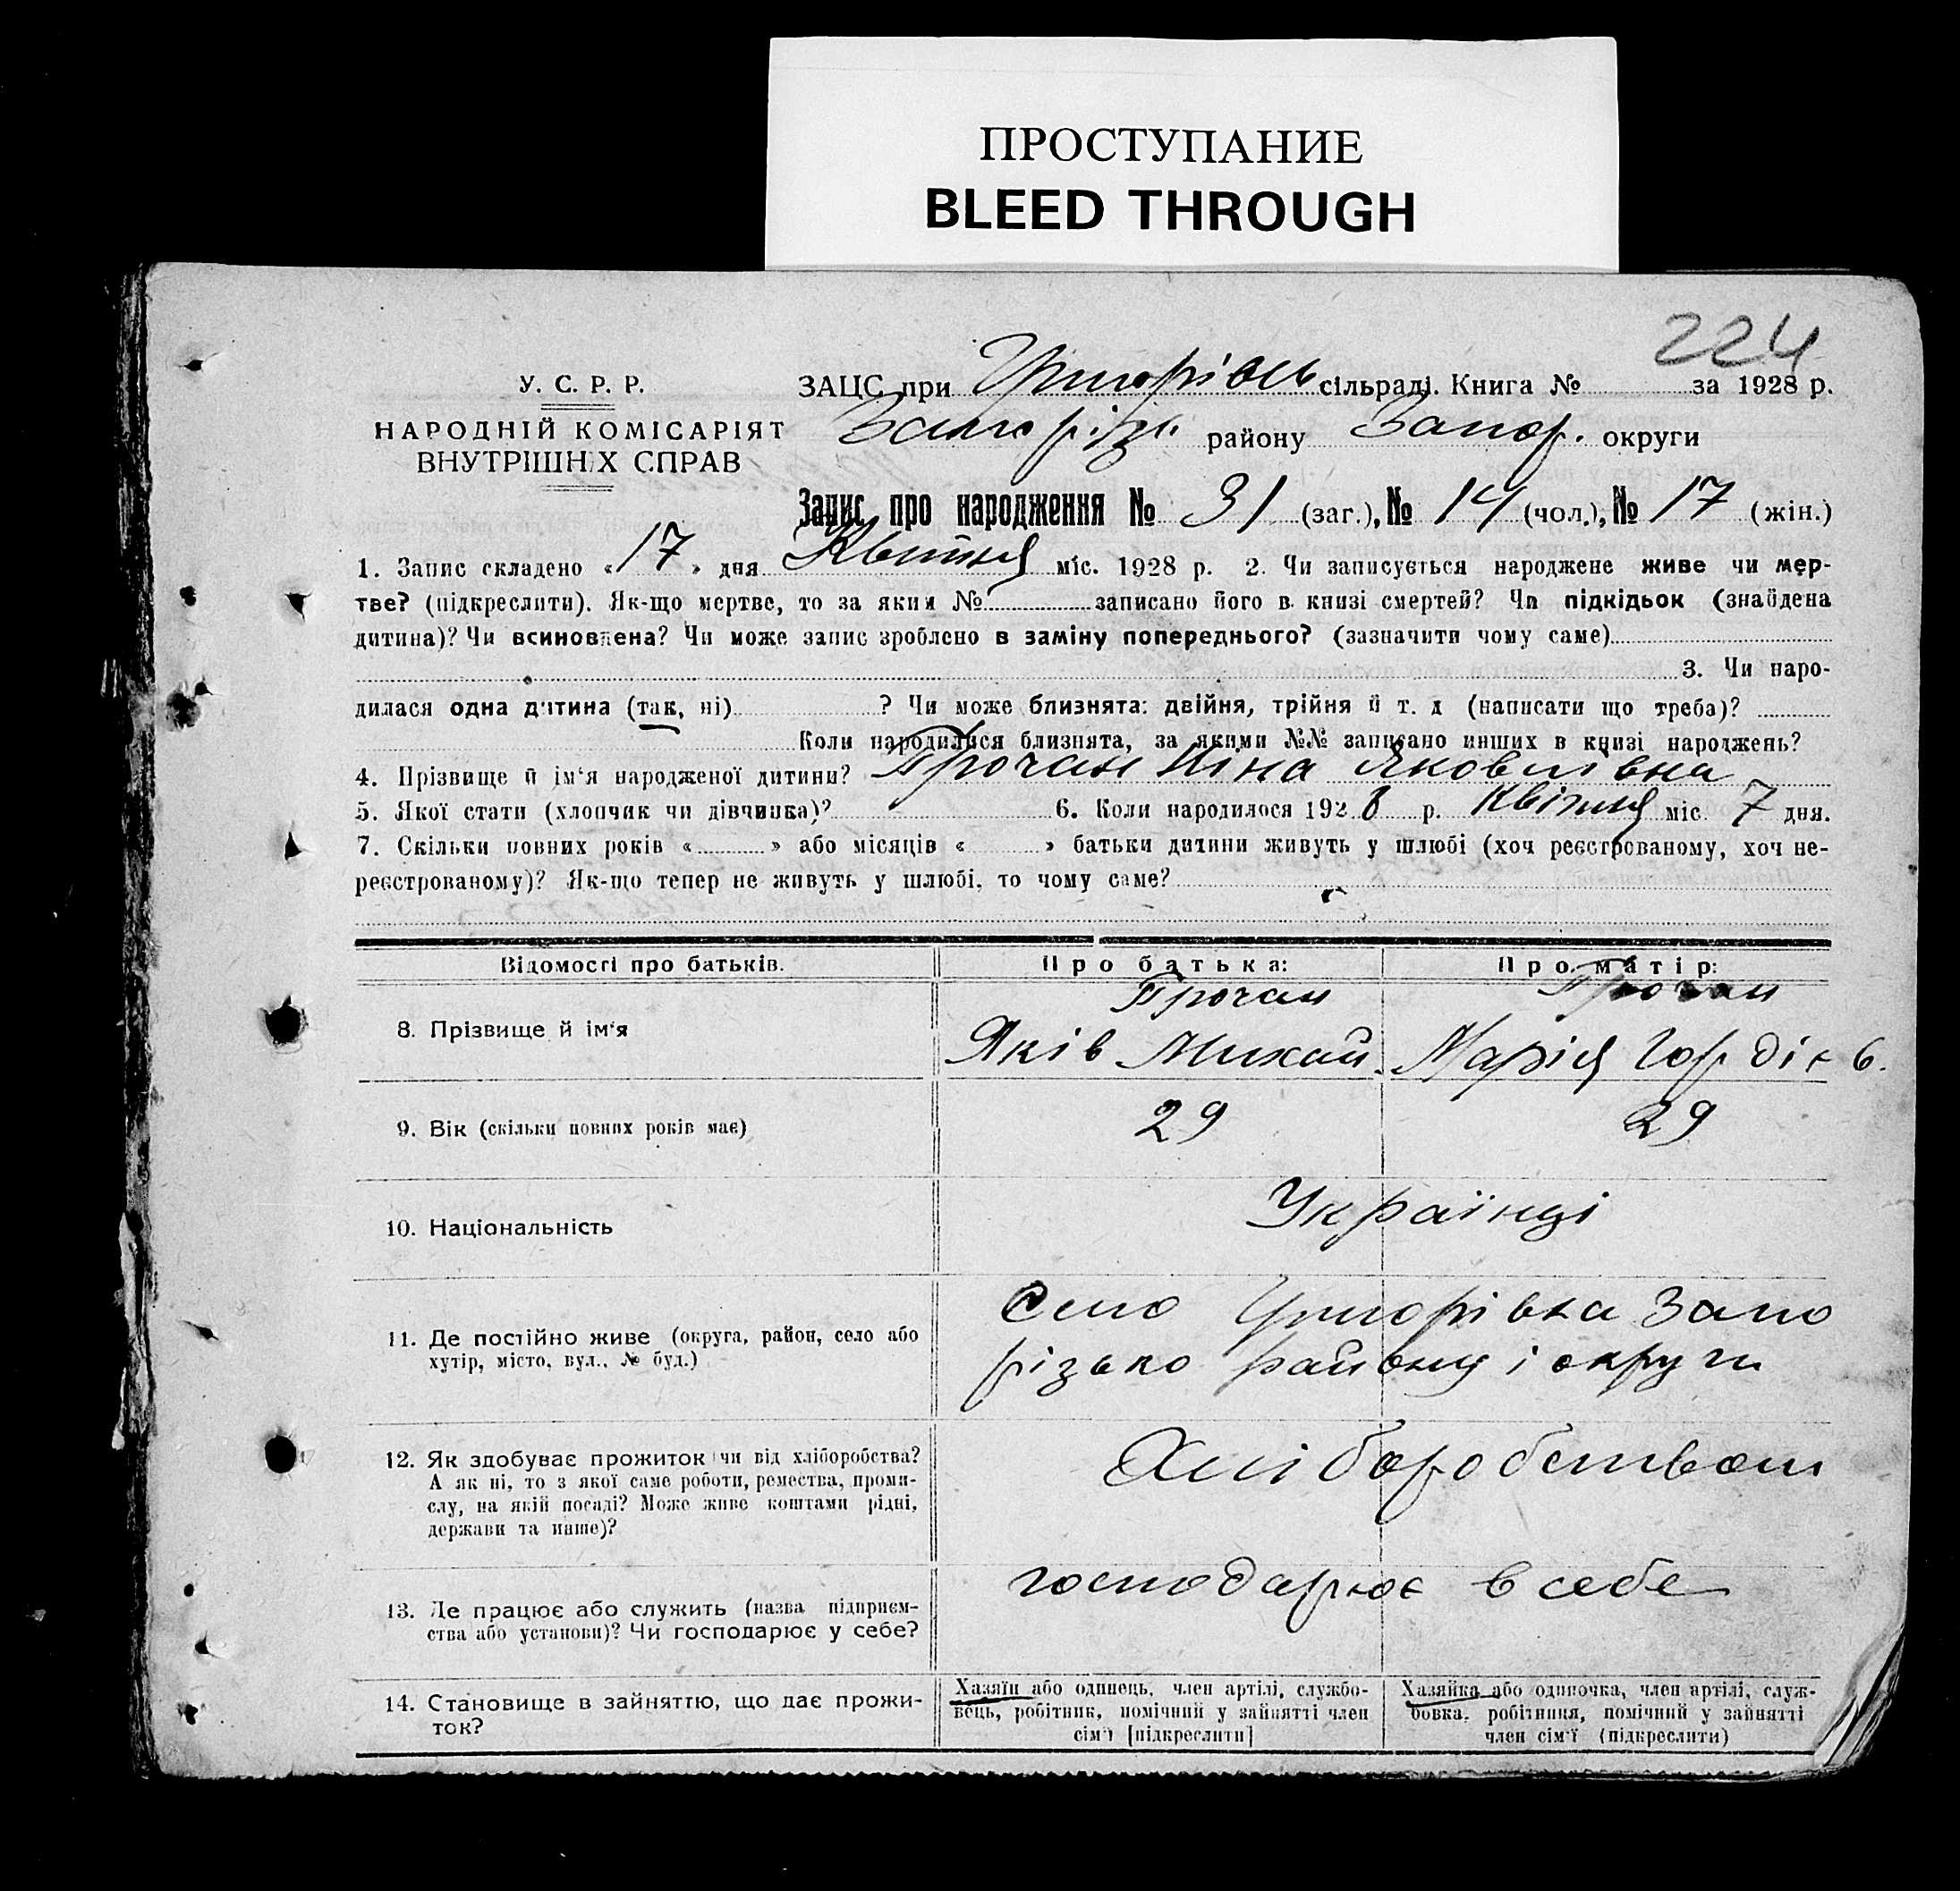 ПРОСТУПАНИЕ
BLEED THROUGH
224
У. С. Р. Р.
НАРОДНІЙ КОМІСАРІЯТ
ВНУТРІШНІХ СПРАВ
ЗАЦС при Григорівсь сільраді. Книга № за 1928 р.
Запоріз. району Запор. округи
Запис про народження № 31 (заг.), № 14 (чол.), № 17 (жін.)
1. Запис складено « 17 » дня Квітня міс. 1928 р. 2. Чи записується народжене живе чи мер-
тве? (підкреслити). Як-що мертве, то за яким № записано його в книзі смертей? Чи підкідьок (знайдена
дитина)? Чи всиновлена? Чи може запис зроблено в заміну попереднього? (зазначити чому саме)
3. Чи наро-
дилася одна дитина (так, ні) ? Чи може близнята: двійня, трійня й т. д (написати що треба)?
Коли народилися близнята, за якими №№ записано инших в книзі народжень?
4. Прізвище й ім‘я народженої дитини? Прочан Ніна Яковлівна
5. Якої стати (хлопчик чи дівчинка)? 6. Коли народилося 1928 р. Квітня міс. 7 дня.
7. Скільки повних років « » або місяців « » батьки дитини живуть у шлюбі (хоч реєстрованому, хоч не-
реєстрованому)? Як-що тепер не живуть у шлюбі, то чому саме?
Відомості про батьків. Про батька: Про матір:
Прочан Прочан
8. Прізвище й ім‘я Яків Михай. Марія Гордієв.
9. Вік (скільки повних років має) 29 29
10. Національність Українці
Село Григорівка Запо
11. Де постійно живе (округа, район, село або
хутір, місто, вул., № буд.) різько району і округи
12. Як здобуває прожиток чи від хліборобства? Хліборобством
А як ні, то з якої саме роботи, ремества, проми-
слу, на якій посаді? Може живе коштами рідні,
держави та инше)?
господарює в себе
13. Де працює або служить (назва підприєм-
ства або установи)? Чи господарює у себе?
14. Становище в зайняттю, що дає прожи-
ток?
Хазяїн або одинець, член артілі, службо-
вець, робітник, помічний у зайнятті член
сім‘ї [підкреслити]
Хазяйка або одиночка, член артілі, служ-
бовка, робітниця, помічний у зайнятті
член сім‘ї (підкреслити)